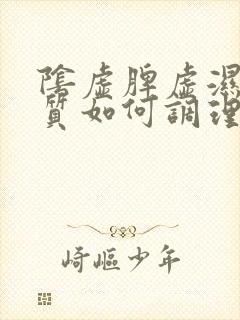 陰虛脾虛濕
質如何調理
崎嶇少年